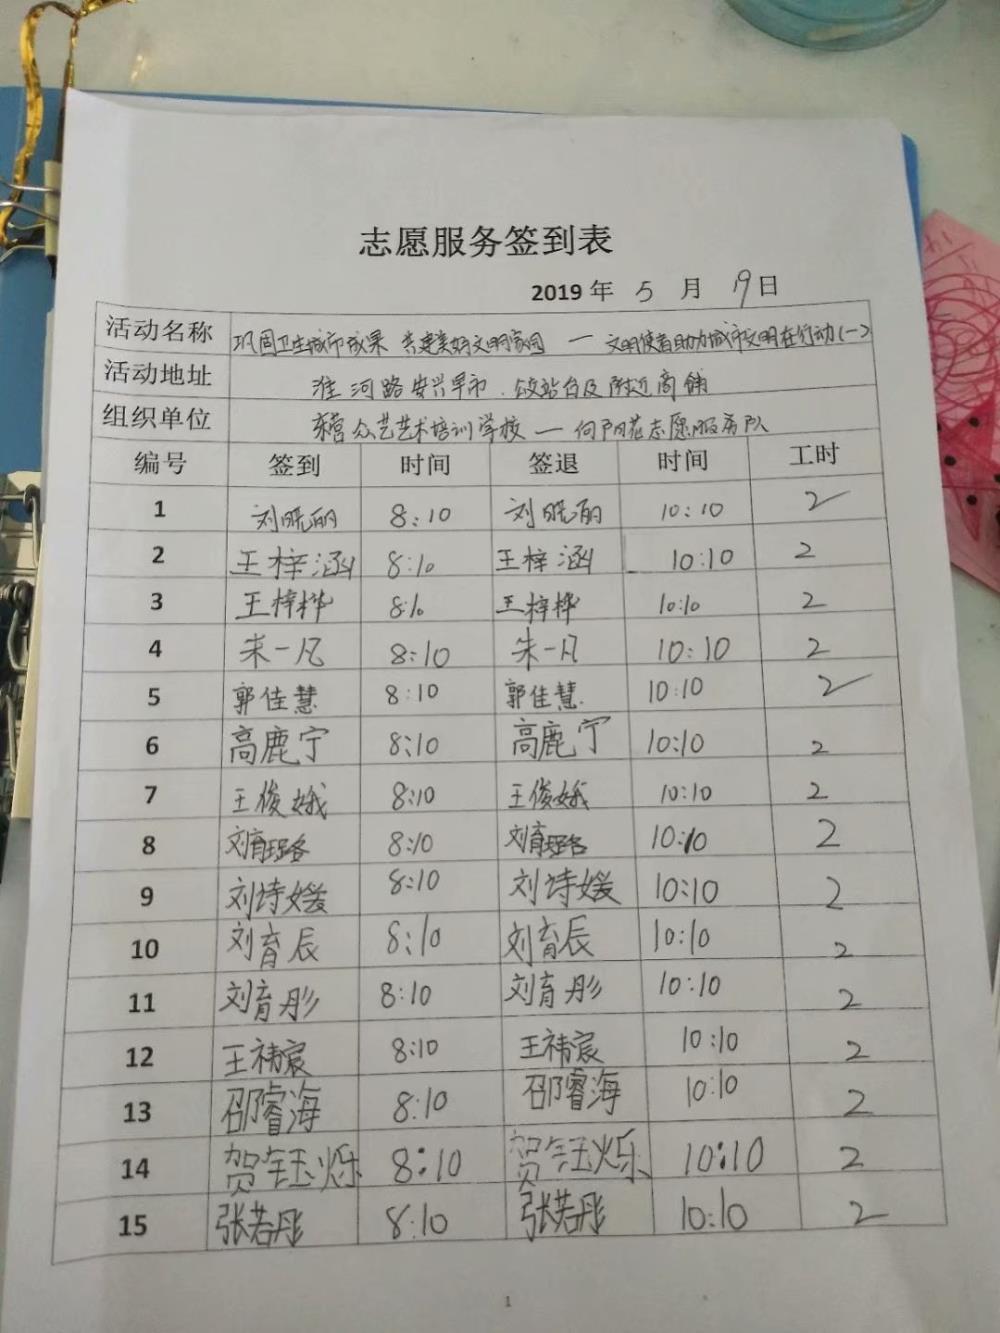 志愿服务签到表
2019 年 5 月 19 日
活动名称 巩固卫生城市成果 共建美好文明家园 — 文明使者助力城市文明在行动(一)
活动地址 淮河路安兴早市.公交站台及附近商铺
组织单位 东营众艺艺术培训学校 — 向阳花志愿服务队
编号 签到 时间 签退 时间 工时
1 刘晓丽 8:10 刘晓丽 10:10 2
2 王梓涵 8:10 王梓涵 10:10 2
3 王梓桦 8:10 王梓桦 10:10 2
4 朱一凡 8:10 朱一凡 10:10 2
5 郭佳慧 8:10 郭佳慧 10:10 2
6 高鹿宁 8:10 高鹿宁 10:10 2
7 王俊娥 8:10 王俊娥 10:10 2
8 刘育璐 8:10 刘育璐 10:10 2
9 刘诗媛 8:10 刘诗媛 10:10 2
10 刘育辰 8:10 刘育辰 10:10 2
11 刘育彤 8:10 刘育彤 10:10 2
12 王祎宸 8:10 王祎宸 10:10 2
13 邵睿海 8:10 邵睿海 10:10 2
14 贺钰烁 8:10 贺钰烁 10:10 2
15 张若彤 8:10 张若彤 10:10 2
1